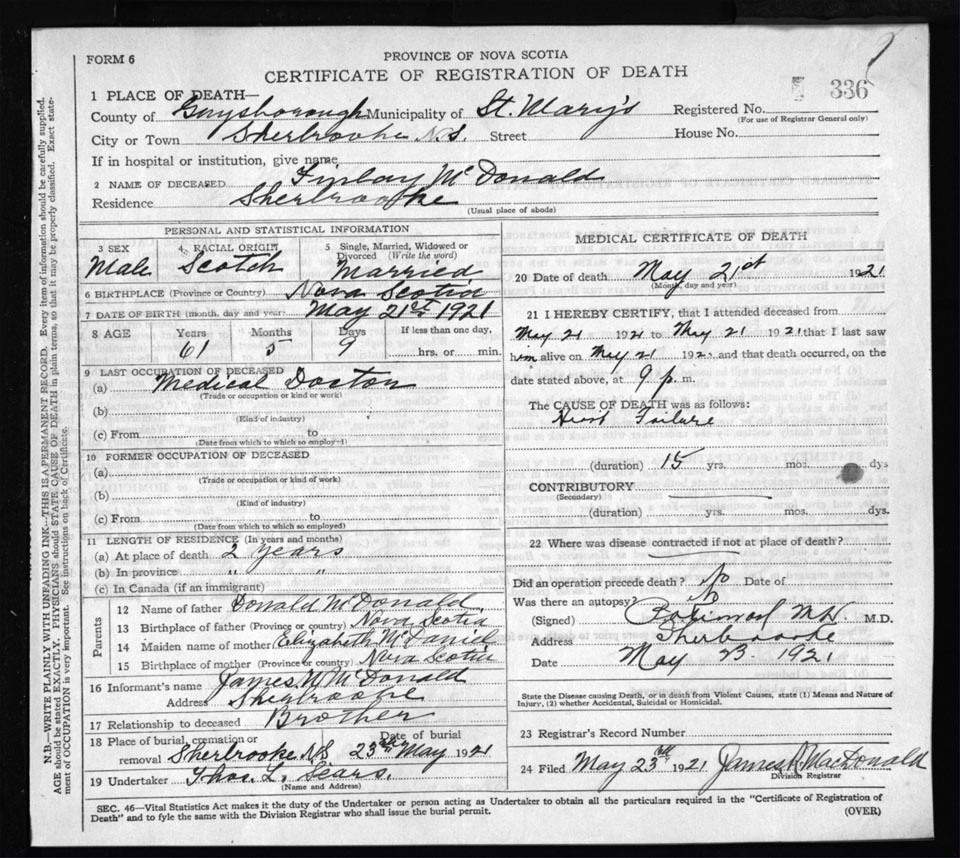 FORM 6
PROVINCE OF NOVA SCOTIA
CERTIFICATE OF REGISTRATION OF DEATH
336
1 PLACE OF DEATH—
County of Guysborough Municipality of St. Mary's Registered No.
(For use of Registrar General only)
City or Town Sherbrooke N.S. Street House No.
If in hospital or institution, give name
2 NAME OF DECEASED Finlay McDonald
Residence Sherbrooke
(Usual place of abode)
PERSONAL AND STATISTICAL INFORMATION
3 SEX 4 RACIAL ORIGIN 5 Single, Married, Widowed or Divorced (Write the word)
Male Scotch Married
6 BIRTHPLACE (Province or Country) Nova Scotia
7 DATE OF BIRTH (month, day and year) May 21st 1921
8 AGE Years Months Days If less than one day,
61 5 9 hrs. or min.
9 LAST OCCUPATION OF DECEASED
(a) Medical Doctor
(Trade or occupation or kind or work)
(b)
(Kind of industry)
(c) From to
(Date from which to which so employed)
10 FORMER OCCUPATION OF DECEASED
(a)
(Trade or occupation or kind of work)
(b)
(Kind of industry)
(c) From to
(Date from which to which so employed)
11 LENGTH OF RESIDENCE (In years and months)
(a) At place of death 2 years
(b) In province " "
(c) In Canada (if an immigrant)
Parents
12 Name of father Donald McDonald
13 Birthplace of father (Province or country) Nova Scotia
14 Maiden name of mother Elizabeth McDaniel
15 Birthplace of mother (Province or country) Nova Scotia
16 Informant's name James W McDonald
Address Sherbrooke
17 Relationship to deceased Brother
18 Place of burial, cremation or removal Date of burial
Sherbrooke NS 23rd May 1921
19 Undertaker Thos. L. Sears.
(Name and Address)
MEDICAL CERTIFICATE OF DEATH
20 Date of death May 21st 1921
(Month, day and year)
21 I HEREBY CERTIFY, that I attended deceased from
May 21 1921 to May 21 1921 that I last saw
him alive on May 21 192 and that death occurred, on the
date stated above, at 9 p. m.
The CAUSE OF DEATH was as follows:
Heart Failure
(duration) 15 yrs. mos. dys
CONTRIBUTORY
(Secondary)
(duration) yrs. mos. dys.
22 Where was disease contracted if not at place of death?
Did an operation precede death? No Date of
Was there an autopsy? No
(Signed) M.D. M.D.
Address Sherbrooke
Date May 23 1921
State the Disease causing Death, or in death from Violent Causes, state (1) Means and Nature of
Injury, (2) whether Accidental, Suicidal or Homicidal.
23 Registrar's Record Number
24 Filed May 23rd 1921 James A. MacDonald
Division Registrar
SEC. 46—Vital Statistics Act makes it the duty of the Undertaker or person acting as Undertaker to obtain all the particulars required in the "Certificate of Registration of
Death" and to fyle the same with the Division Registrar who shall issue the burial permit. (OVER)
N.B.—WRITE PLAINLY WITH UNFADING INK—THIS IS A PERMANENT RECORD. Every item of information should be carefully supplied.
AGE should be stated EXACTLY. PHYSICIANS should STATE CAUSE OF DEATH in plain terms, so that it may be properly classified. Exact state-
ment of OCCUPATION is very important. See instructions on back of Certificate.